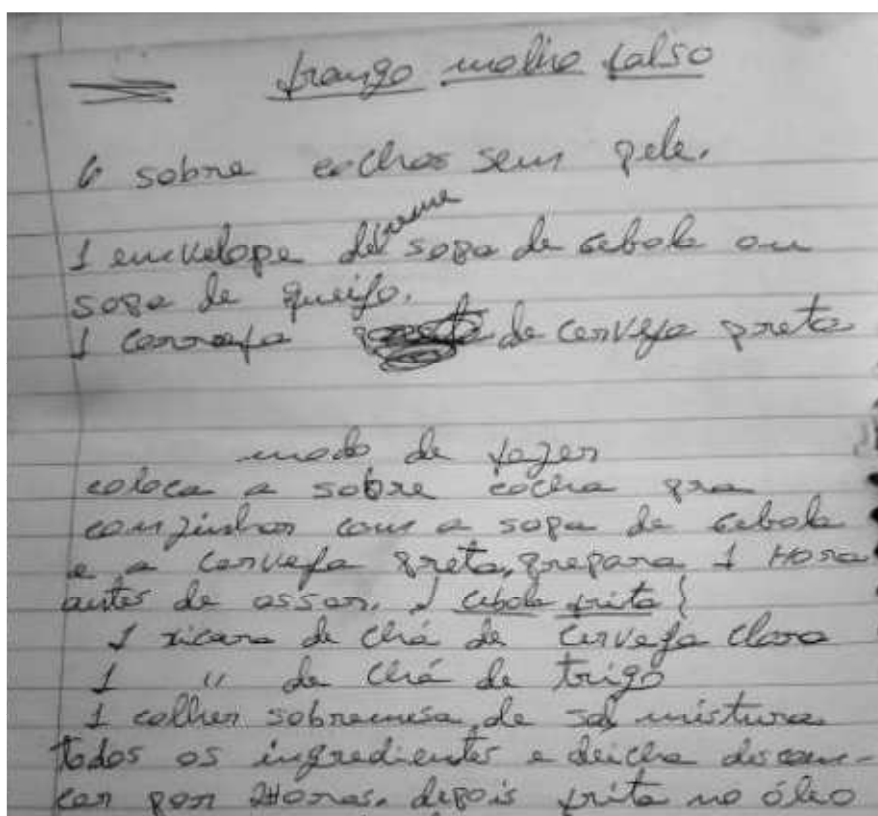 frango molho falso
6 sobre cochas sem pele.
1 envelope de creme sopa de cebola ou
sopa de queijo.
1 garrafa de cerveja preta
modo de fazer
coloca a sobre cocha pra
comzinhar com a sopa de cebola
e a cerveja preta, prepara 1 Hora
antes de assar. { cebola frita {
1 xicara de chá de cerveja clara
1 " de chá de trigo
1 colher sobremesa de sal mistura
todos os ingredientes e deicha descan-
car por 2Horas. depois frita no óleo